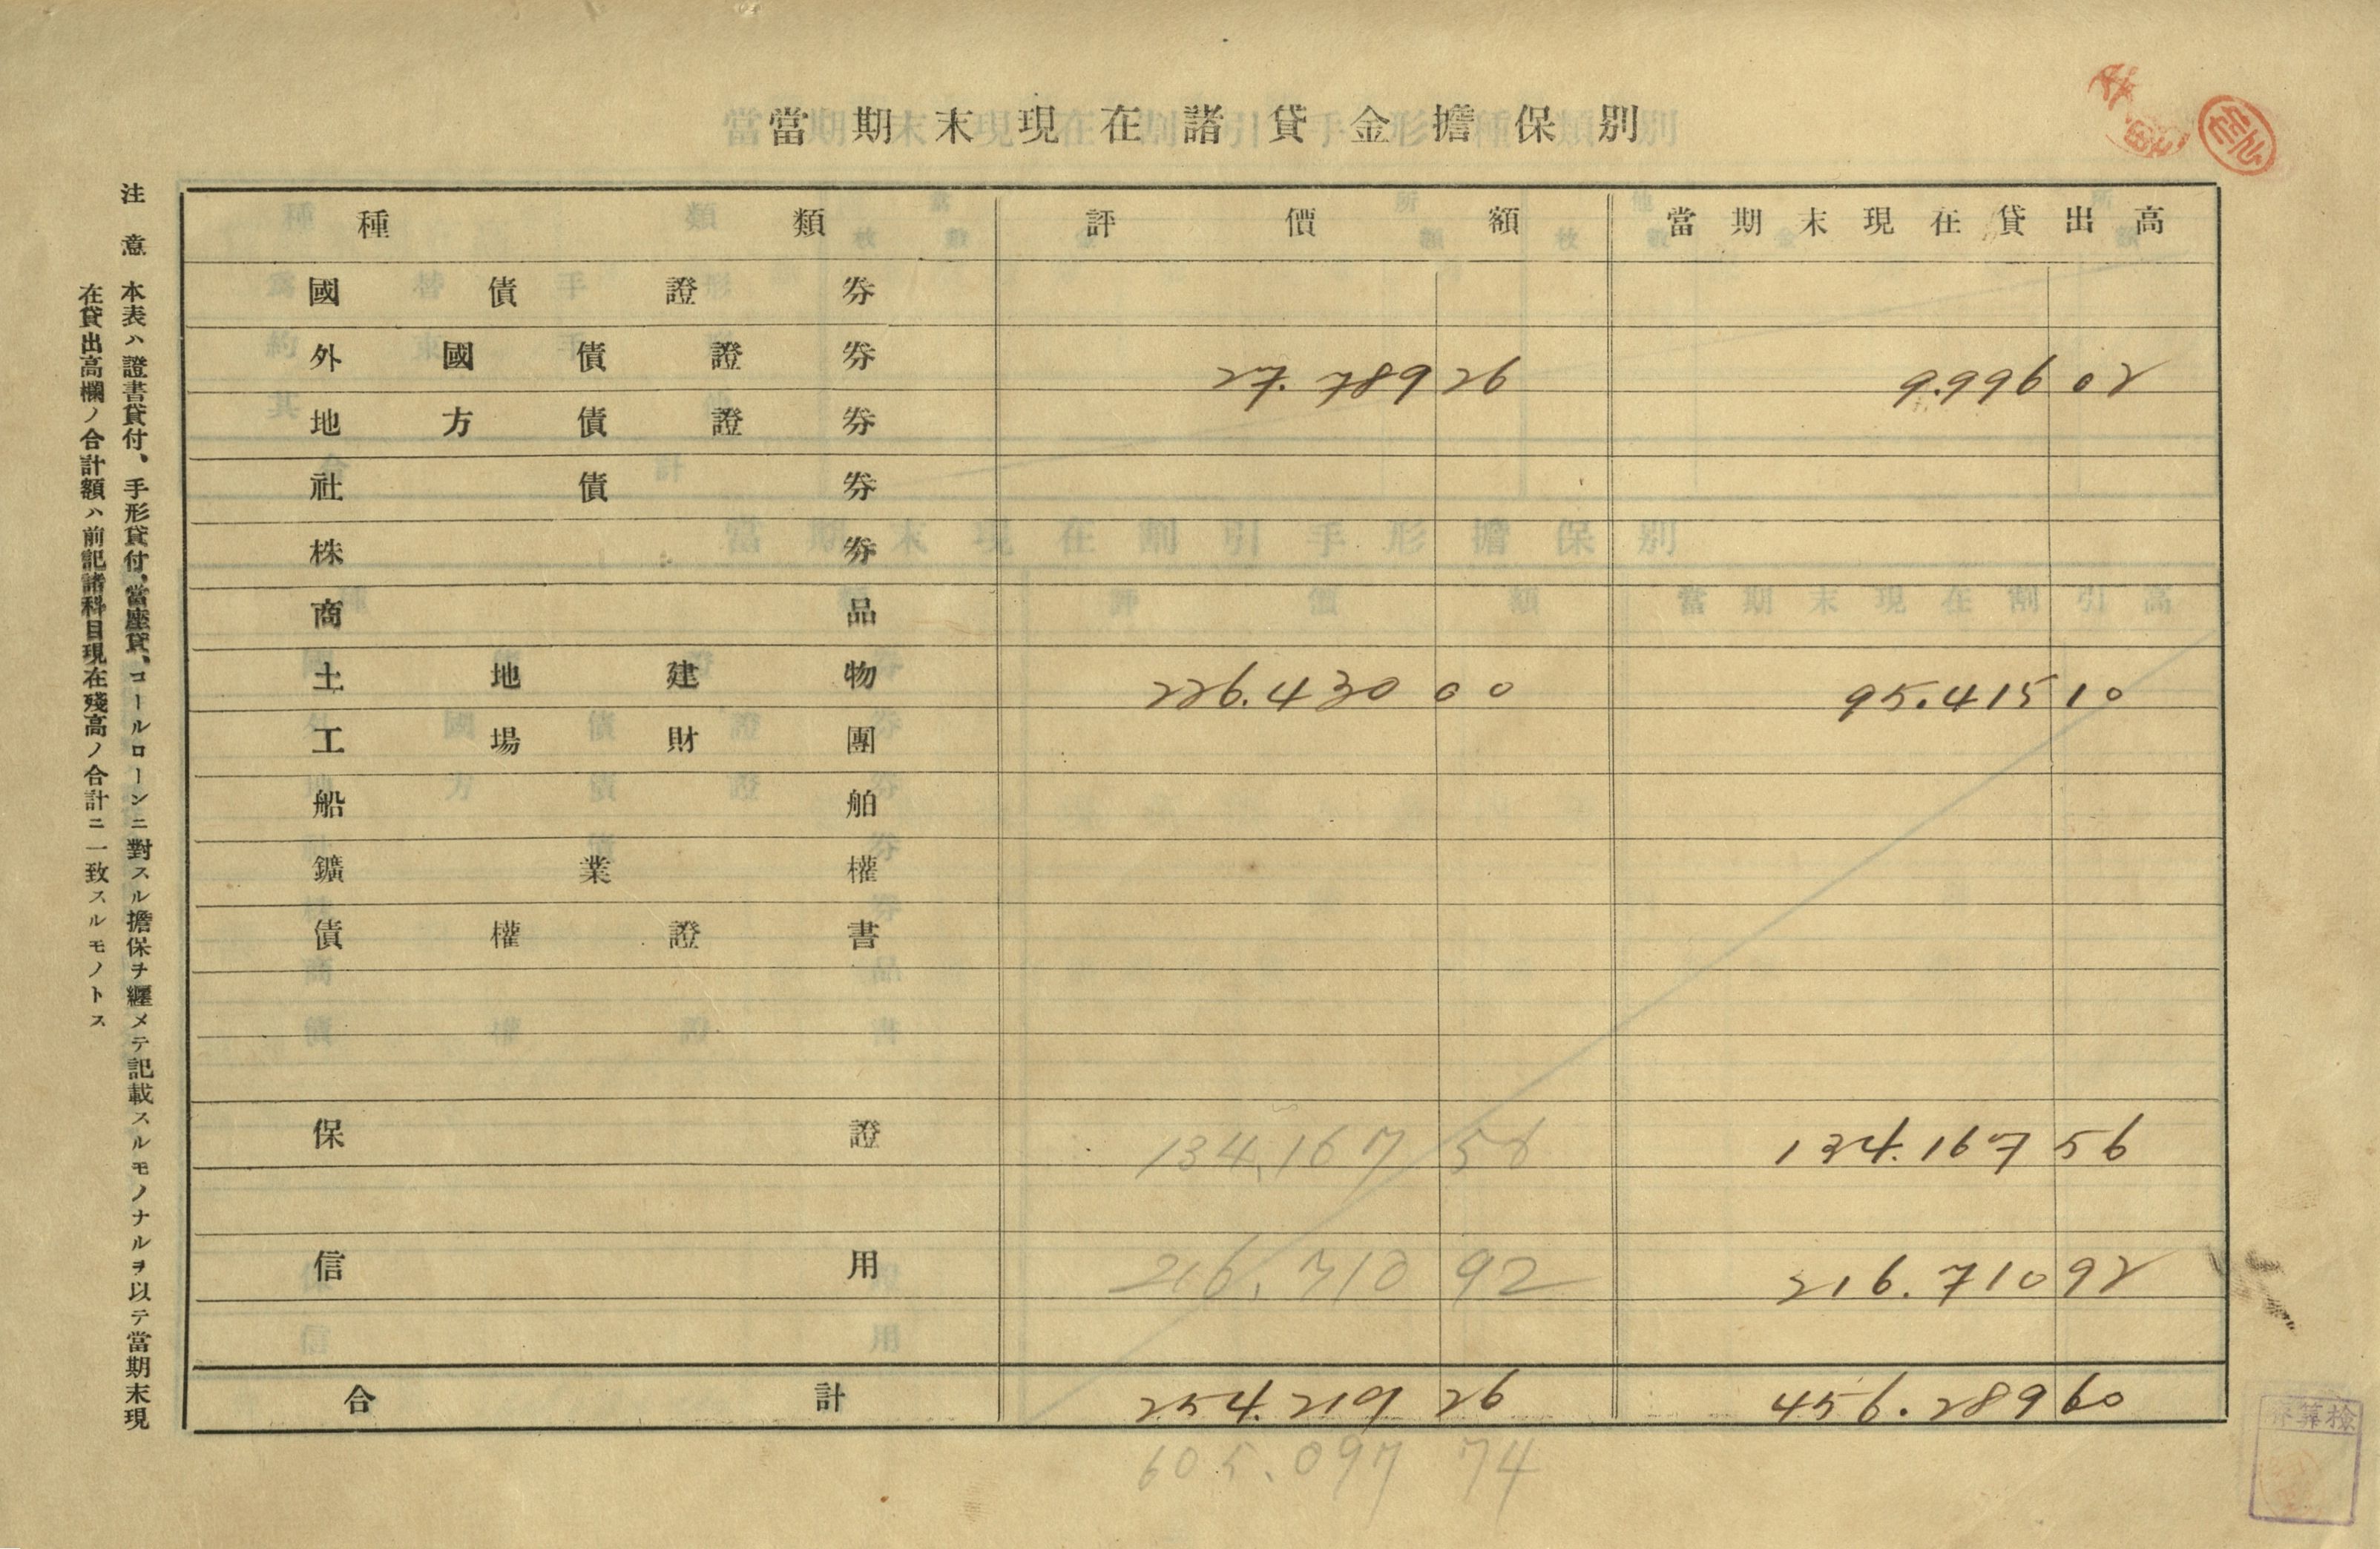 當期末現在諸貸金擔保別
種類 評價額 當期末現在貸出高
國債證券
外國債證券 27.789 26 9.996 02
地方債證券
社債券
株券
商品
土地建物 226.430 00 95.415 10
工場財團
船舶
鑛業權
債權證書
保證 134,167 56 134.167 56
信用 216,710 92 216.710 92
合計 254.219 26 456.289 60
605.097 74
注意 本表ハ證書貸付、手形貸付、當座貸、コールローンニ對スル擔保ヲ纒メテ記載スルモノナルヲ以テ當期末現
在貸出高欄ノ合計額ハ前記諸科目現在殘高ノ合計ニ一致スルモノトス
檢算券